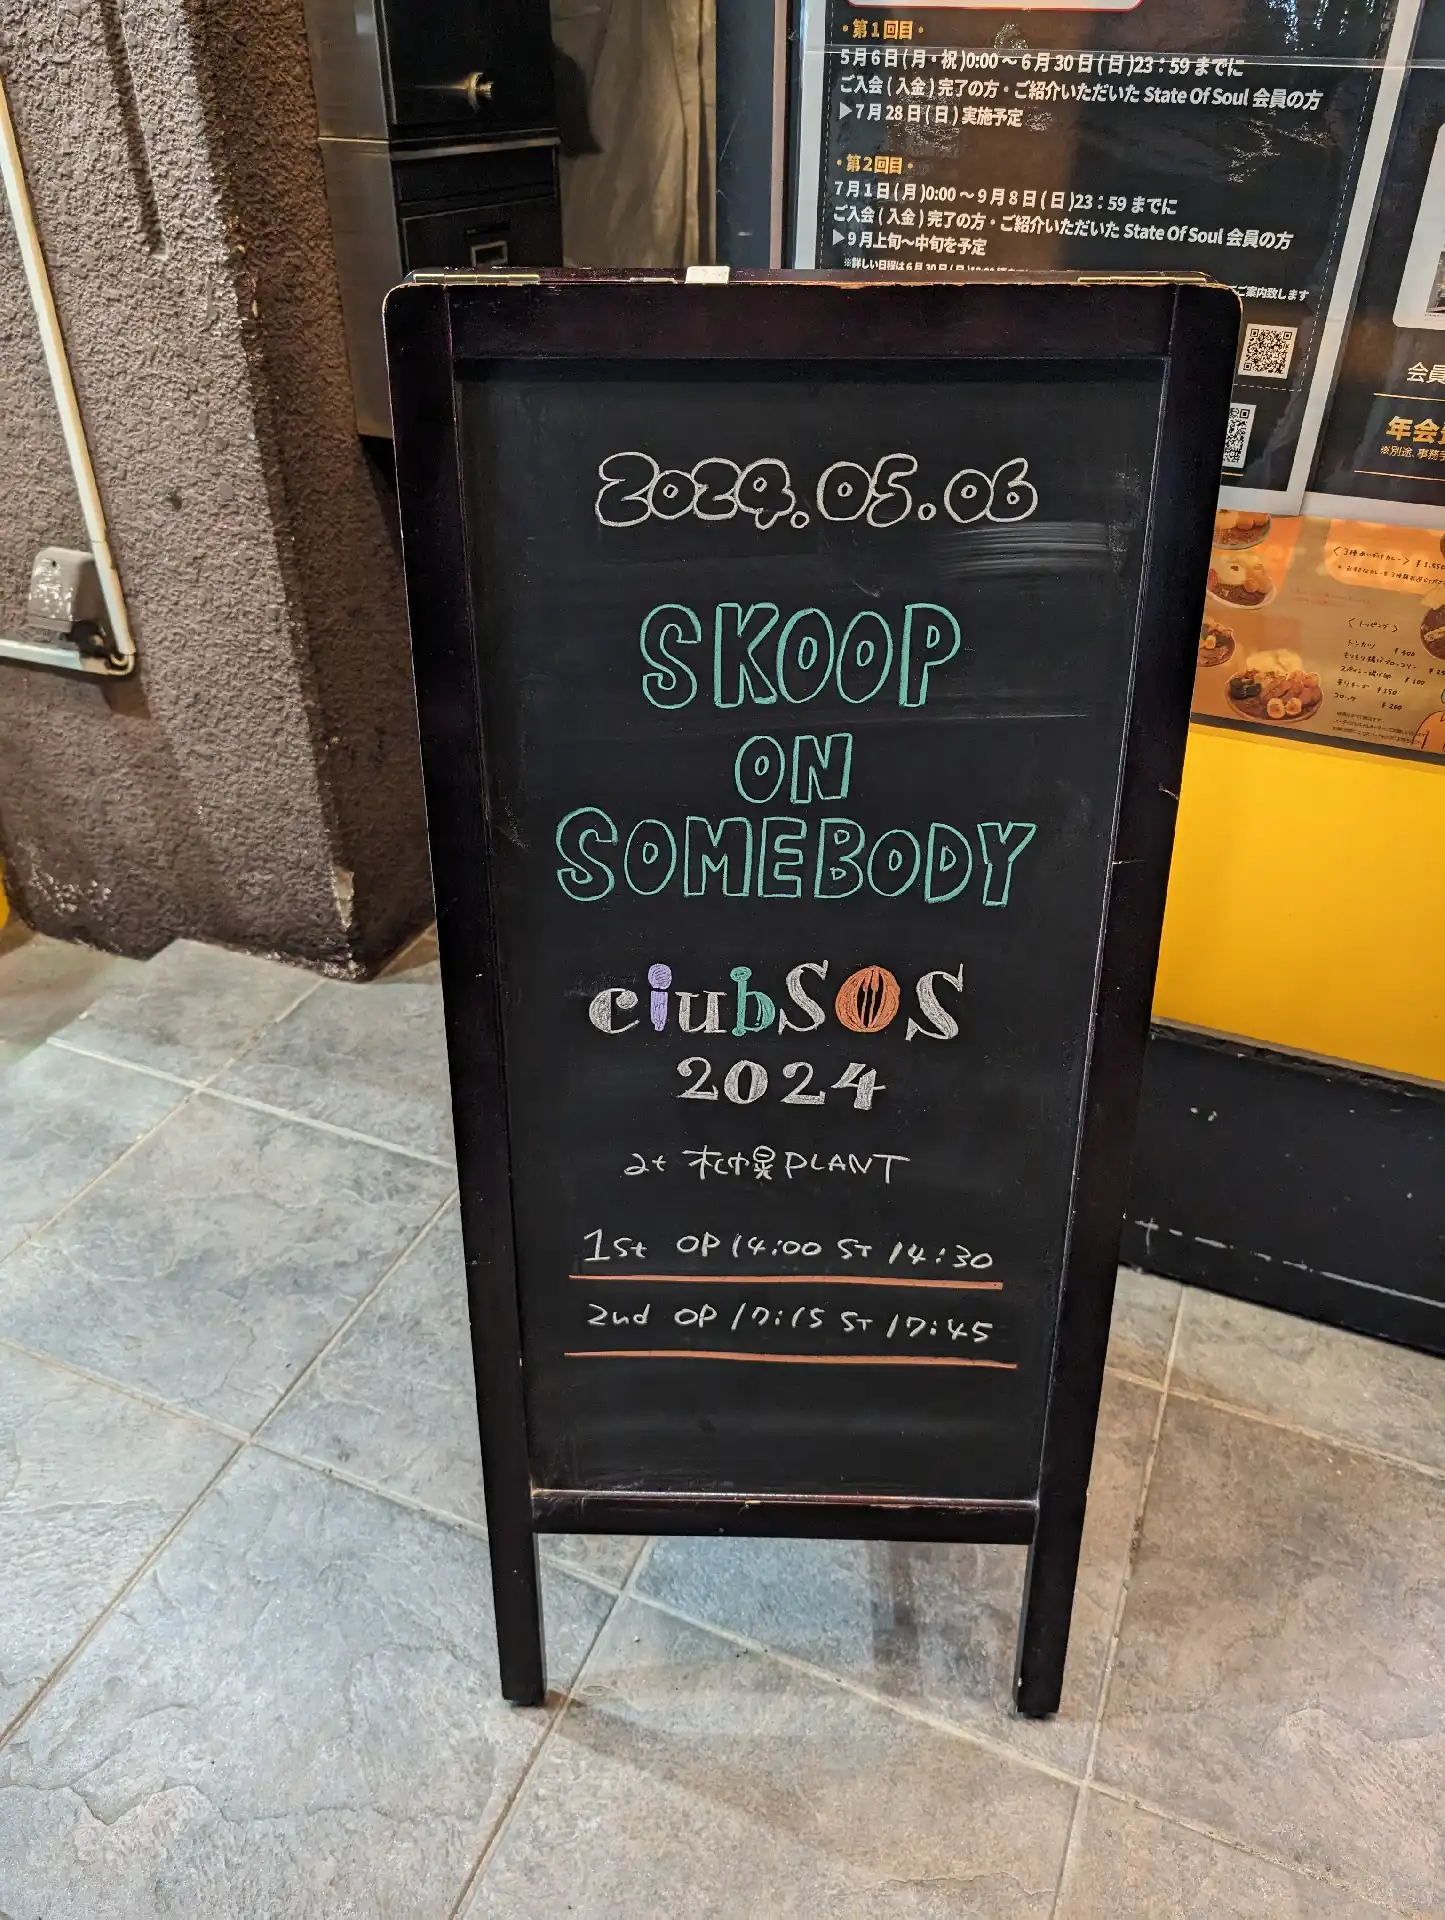 ・第1回目・
5月6日(月・祝)0:00〜6月30日(日)23：59までに
ご入会(入金)完了の方・ご紹介いただいた State Of Soul 会員の方
▶7月28日(日)実施予定
・第2回目・
7月1日(月)0:00〜9月8日(日)23：59までに
ご入会(入金)完了の方・ご紹介いただいた State Of Soul 会員の方
▶9月上旬〜中旬を予定
※詳しい日程は6月30日
ご案内致します
会員
年会
※別途、事務手
2024.05.06
SKOOP
ON
SOMEBODY
clubSOS
2024
at 札幌PLANT
1st OP 14:00 ST 14:30
2nd OP 17:15 ST 17:45
<3種あいがけカレー> ¥1,550
<トッピング>
トンカツ ¥400
コロッケ ¥200